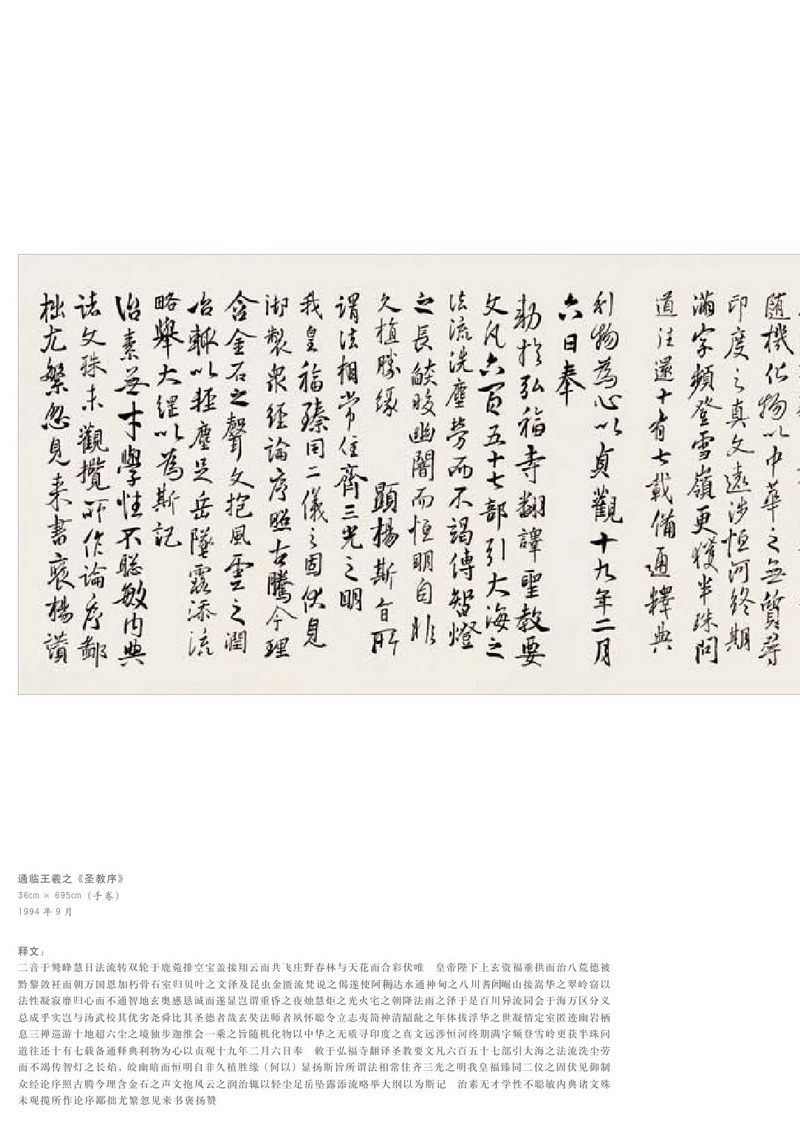 随機化物以中華之無質尋
印度之真文遠涉恒河終期
滿字頻登雪嶺更獲半珠問
道往還十有七載備通釋典
利物為心以貞觀十九年二月
六日奉
勅於弘福寺翻譯聖教要
文凡六百五十七部引大海之
法流洗塵勞而不竭傳智燈
之長燄皎幽闇而恒明自非
久植勝緣 顯楊斯旨所
謂法相常住齊三光之明
我皇福臻同二儀之固伏見
御製眾經論序照古騰今理
含金石之聲文抱風雲之潤
治輙以輕塵足岳墜露添流
略舉大綱以為斯記
治素無才學性不聪敏内典
諸文殊未觀攬所作論序鄙
拙尤繁忽見来書褒楊讃
通临王羲之《圣教序》
36cm × 695cm（手卷）
1994 年 9 月
释文：
二音于鹫峰慧日法流转双轮于鹿菀排空宝盖接翔云而共飞庄野春林与天花而合彩伏唯　皇帝陛下上玄资福垂拱而治八荒德被
黔黎敛衽而朝万国恩加朽骨石室归贝叶之文泽及昆虫金匮流梵说之偈遂使阿耨达水通神甸之八川耆阇崛山接嵩华之翠岭窃以
法性凝寂靡归心而不通智地玄奥感恳诚而遂显岂谓重昏之夜烛慧炬之光火宅之朝降法雨之泽于是百川异流同会于海万区分义
总成乎实岂与汤武校其优劣尧舜比其圣德者哉玄奘法师者夙怀聪令立志夷简神清龆龀之年体拔浮华之世凝情定室匿迹幽岩栖
息三禅巡游十地超六尘之境独步迦维会一乘之旨随机化物以中华之无质寻印度之真文远涉恒河终期满字频登雪岭更获半珠问
道往还十有七载备通释典利物为心以贞观十九年二月六日奉　敕于弘福寺翻译圣教要文凡六百五十七部引大海之法流洗尘劳
而不竭传智灯之长焰，皎幽暗而恒明自非久植胜缘（何以）显扬斯旨所谓法相常住齐三光之明我皇福臻同二仪之固伏见御制
众经论序照古腾今理含金石之声文抱风云之润治辄以轻尘足岳坠露添流略举大纲以为斯记　治素无才学性不聪敏内典诸文殊
未观揽所作论序鄙拙尤繁忽见来书褒扬赞